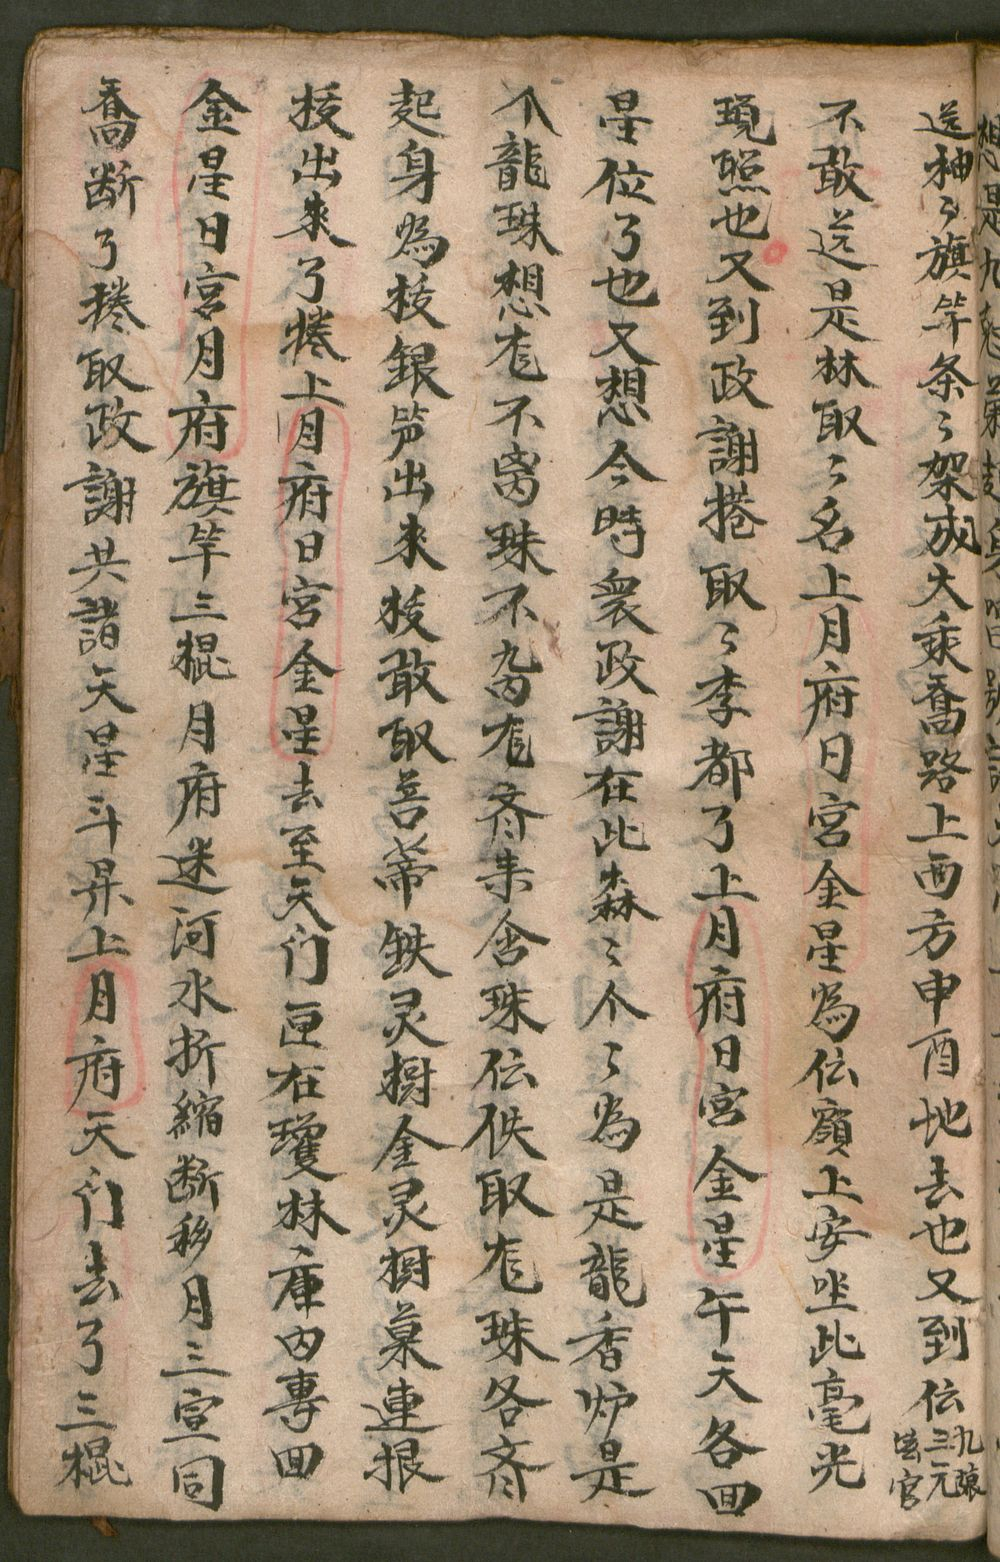 送神〻旗竿条〻架成大乘喬路上西方申酉地去也又到伝九張三元法官
不敢送是林取〻名上月府日宮金星為伝賓上安坐此毫光
現照也又到政謝捲取〻李都了上月府日宮金星午天各回
星位了也又想今時衆政謝在此森〻个〻為是龍香炉是
个龍珠想尨不离珠不尨齐未含珠伝佚取尨珠各齐
起身為拔銀笋出來拔敢取善蒂鉄灵樹金灵樹菓連根
拔出來了捲上月府日宮金星去至天门匣在瓊林庫内專回
金星日宮月府旗竿三棍月府迷河水折縮断移月三宣同
喬断了捲取政謝共諸天星斗昇上月府天门去了三棍